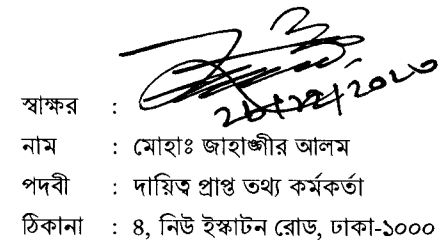 স্বাক্ষর :
নাম : মোহাঃ জাহাঙ্গীর আলম
পদবী : দায়িত্ব প্রাপ্ত তথ্য কর্মকর্তা
ঠিকানা : ৪, নিউ ইস্কাটন রোড, ঢাকা-১০০০